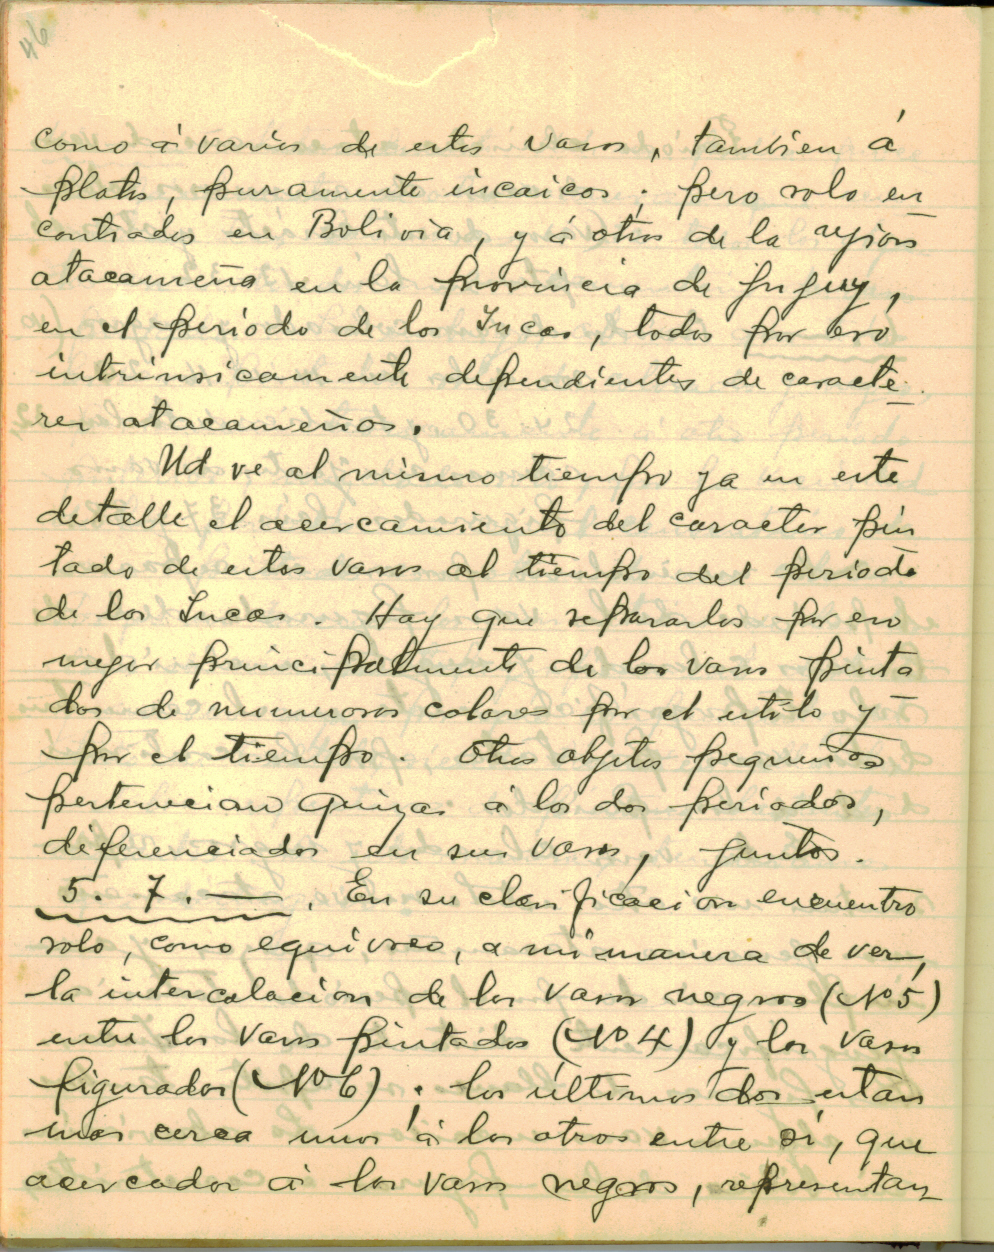 46
como á varios de estos vasos, tambien á
platos, puramente incaicos; pero solo en
contrados en Bolivia, y á otros de la rejion
atacameña en la provincia de Jujuy,
en el periodo de los Incas, todos por eso
intrinsicamente dependientes de caracte
res atacameños.
Ud ve al mismo tiempo ya en este
detalle el acercamiento del caracter pin
tado de estos vasos al tiempo del periodo
de los Incas. Hay que separarlos por eso
mejor principalmente de los vasos pinta
dos de numerosos colores por el estilo y
por el tiempo. Otros objetos pequeños
pertenecian quizas á los dos periodos,
diferenciados en sus vasos, juntos.
5. 7. —. En su clasificacion encuentro
solo, como equívoco, a mi manera de ver,
la intercalacion de los vasos negros (No 5)
entre los vasos pintados (No 4) y los vasos
figurados (No 6); los últimos dos estan
mas cerca unos á los otros entre sí, que
acercados á los vasos negros, representan